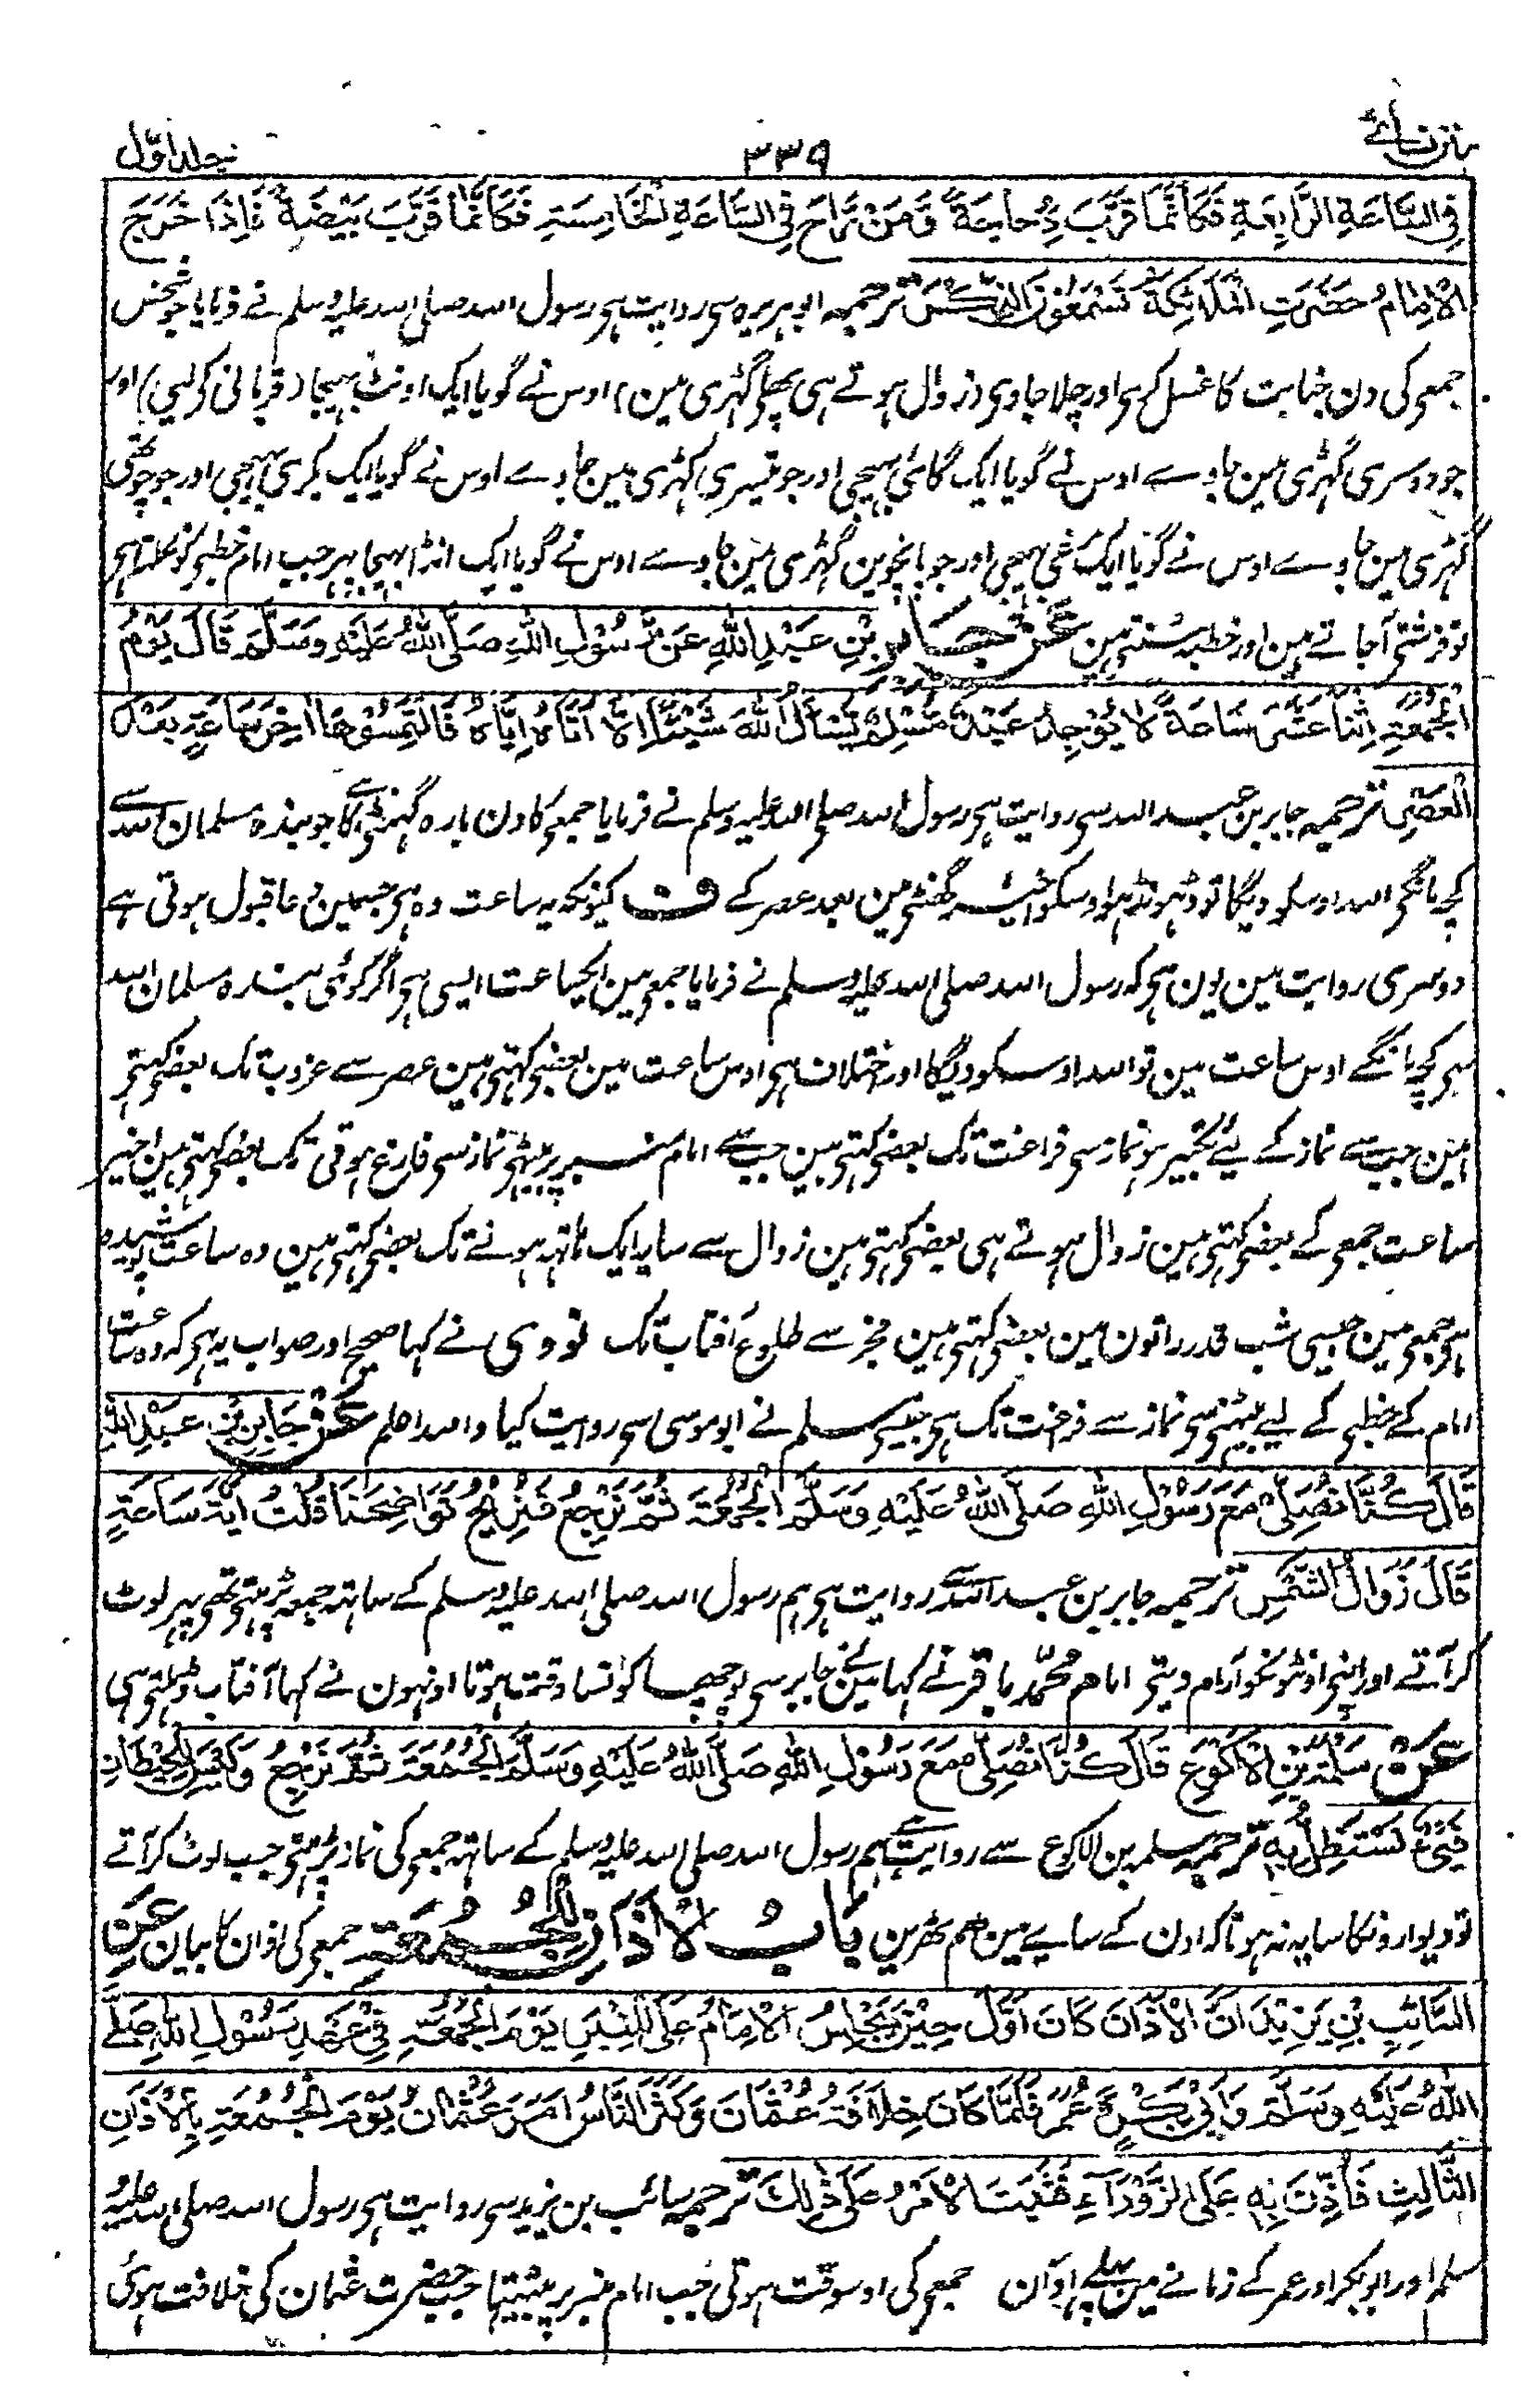 سنن نسائے ۳۳۹ جلد اوّل
فِی السَّاعَةِ الرَّابِعَةِ فَكَاَنَّمَا قَرَّبَ دُجَاجَةً وَّمَنْ رَّاحَ فِی السَّاعَةِ الْخَامِسَةِ فَكَاَنَّمَا قَرَّبَ بَيْضَةً فَاِذَا خَرَجَ
الْاِمَامُ حَضَرَتِ الْمَلَائِكَةُ يَسْتَمِعُوْنَ الذِّكْرَ ترجمہ ابو ہریرہ سی روایت ہی رسول اللہ صلی اللہ علیہ وسلم نے فرمایا جو شخص
جمعی کی دن جنابت کا غسل کری اور چلا جاوی (زوال ہوتے ہی پہلی گہڑی مین) اوس نے گویا ایک اونٹ بہیجا (قربانی کرلیی) اور
جو دوسری گہڑی مین جاوے اوس نے گویا ایک گائی بہیجی اور جو تیسری گہڑی مین جاوے اوس نے گویا ایک بکری بہیجی اور جو چوتھی
گہڑی مین جاوے اوس نے گویا ایک مرغی بہیجی اور جو پانچوین گہڑی مین جاوے اوس نے گویا ایک انڈا بہیجا پہر جب امام خطبی کو نکلتا ہی
تو فرشتی آجاتے ہین اور خطبہ سنتی ہین عَنْ جَابِرِ بْنِ عَبْدِ اللّٰهِ عَنْ رَّسُوْلِ اللّٰهِ صَلَّى اللّٰهُ عَلَيْهِ وَسَلَّمَ قَالَ يَوْمُ
الْجُمُعَةِ اثْنَا عَشَرَ سَاعَةً لَا يُوْجِدُ عَبْدٌ مُّسْلِمٌ يَّسْأَلُ اللّٰهَ شَيْئًا اِلَّا اٰتَاهُ اِيَّاهُ فَالْتَمِسُوْهَا اٰخِرَ سَاعَةٍ بَعْدَ
الْعَصْرِ ترجمہ جابر بن عبد اللہ سی روایت ہی رسول اللہ صلی اللہ علیہ وسلم نے فرمایا جمعی کا دن بارہ گہنٹی کا ہے جو بندہ مسلمان اللہ سے
کچہ مانگی اللہ اوسکو دیگا تو ڈہونڈہو اوسکو اخیر گہنٹی مین بعد عصر کے ف کیونکہ یہ ساعت وہ ہی جسمین دعا قبول ہوتی ہے
دوسری روایت مین یون ہی کہ رسول اللہ صلی اللہ علیہ وسلم نے فرمایا جمعی مین ایکساعت ایسی ہی اگر کوئی بندہ مسلمان اللہ
سی کچہ مانگے اوس ساعت مین تو اللہ اوسکو دیگا اور اختلاف ہی اوس ساعت مین بعضی کہتی ہین عصر سے غروب تک بعضی کہتی
ہین جب سے نماز کے لیے تکبیر ہو نماز سی فراغت تک بعضی کہتی ہین جب سے امام منبر پر بیٹہی نماز سی فارغ ہوتی تک بعضی کہتی ہین اخیر
ساعت جمعی کے بعضی کہتی ہین زوال ہوتے ہی بعضی کہتی ہین زوال سے سایہ ایک ہاتہہ ہونے تک بعضی کہتی ہین وہ ساعت پوشیدہ
ہی جمعی مین جیسی شب قدر راتون مین بعضی کہتی ہین فجر سے طلوع آفتاب تک نووی نے کہا صحیح اور صواب یہ ہی کہ وہ ساعت
امام کے خطبی کے لیے بیٹہنی سی نماز سے فراغت تک ہی جیسی مسلم نے ابو موسی سی روایت کیا واللہ اعلم عَنْ جَابِرِ بْنِ عَبْدِ اللّٰهِ
قَالَ كُنَّا نُصَلِّیْ مَعَ رَسُوْلِ اللّٰهِ صَلَّى اللّٰهُ عَلَيْهِ وَسَلَّمَ الْجُمُعَةَ ثُمَّ نَرْجِعُ فَنُرِيْحُ نَوَاضِحَنَا قُلْتُ اَيَّةَ سَاعَةٍ
قَالَ زَوَالَ الشَّمْسِ ترجمہ جابر بن عبد اللہ سے روایت ہی ہم رسول اللہ صلی اللہ علیہ وسلم کے ساتہہ جمعہ پڑہتی تھی پہر لوٹ
کر آتے اور اپنی اونٹونکو آرام دیتی امام محمد باقر نے کہا مینے جابر سی پوچھا کونسا وقت ہوتا اونہون نے کہا آفتاب ڈہلتی ہی
عَنْ سَلَمَةَ بْنِ الْاَكْوَعِ قَالَ كُنَّا نُصَلِّیْ مَعَ رَسُوْلِ اللّٰهِ صَلَّى اللّٰهُ عَلَيْهِ وَسَلَّمَ الْجُمُعَةَ ثُمَّ نَرْجِعُ وَلَيْسَ لِلْحِيْطَانِ
فَیْءٌ يُّسْتَظَلُّ بِهٖ ترجمہ سلمہ بن الاکوع سے روایت ہے ہم رسول اللہ صلی اللہ علیہ وسلم کے ساتہہ جمعی کی نماز پڑہتی جب لوٹ کر آتے
تو دیوارونکا سایہ نہ ہوتا کہ اون کے سایے مین ہم ٹھرین بَابُ الْاَذَانِ لِلْجُمُعَةِ جمعی کی اذان کا بیان عَنِ
السَّائِبِ بْنِ يَزِيْدَ اَنَّ الْاَذَانَ كَانَ اَوَّلَ حِيْنَ يَجْلِسُ الْاِمَامُ عَلَى الْمِنْبَرِ يَوْمَ الْجُمُعَةِ فِیْ عَهْدِ رَسُوْلِ اللّٰهِ صَلَّى
اللّٰهُ عَلَيْهِ وَسَلَّمَ وَاَبِیْ بَكْرٍ وَّعُمَرَ فَلَمَّا كَانَ خِلَافَةُ عُثْمَانَ وَكَثُرَ النَّاسُ اَمَرَ عُثْمَانُ يَوْمَ الْجُمُعَةِ بِالْاَذَانِ
الثَّالِثِ فَاُذِّنَ بِهٖ عَلَى الزَّوْرَآءِ فَثَبَتَ الْاَمْرُ عَلٰى ذٰلِكَ ترجمہ سائب بن یزید سی روایت ہی رسول اللہ صلی اللہ علیہ
سلم اور ابو بکر اور عمر کے زمانے مین پہلے اذان جمعی کی اوسوقت ہوتی جب امام منبر پر بیٹہتا جب حضرت عثمان کی خلافت ہوئی